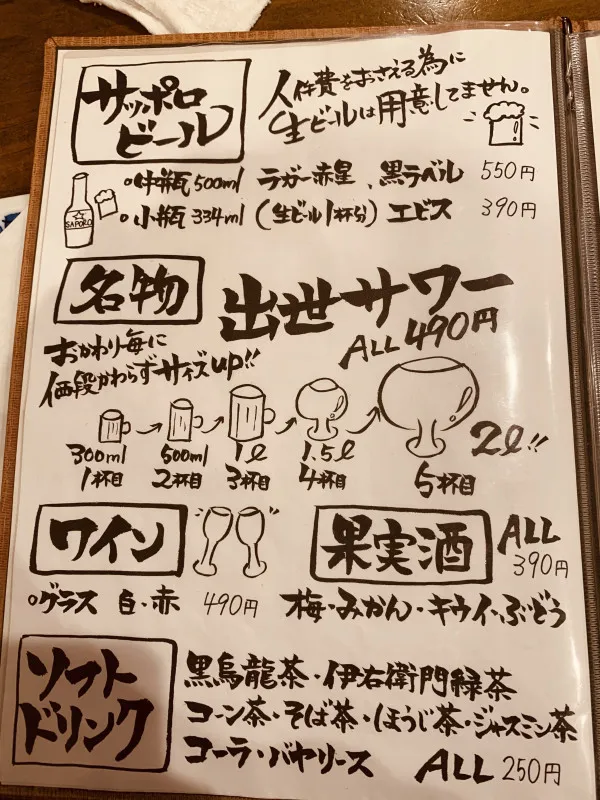 サッポロ
ビール
人件費をおさえる為に
生ビールは用意してません。
SAPORO
◦中瓶 500ml ラガー赤星、黒ラベル 550円
◦小瓶 334ml (生ビール1杯分) エビス 390円
名物
出世サワー
ALL 490円
おかわり毎に
価段かわらずサイズup!!
300ml 500ml 1ℓ 1.5ℓ 2ℓ!!
1杯目 2杯目 3杯目 4杯目 5杯目
ワイン
◦グラス 白・赤 490円
果実酒
ALL
390円
梅・みかん・キウイ・ぶどう
ソフト
ドリンク
黒烏龍茶・伊右衛門緑茶
コーン茶・そば茶・ほうじ茶・ジャスミン茶
コーラ・バヤリース ALL 250円